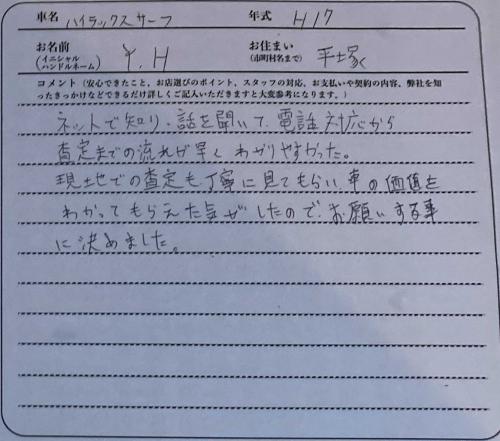 車名 ハイラックスサーフ 年式 H17
お名前 (イニシャル ハンドルネーム) Y.H お住まい (市町村名まで) 平塚
コメント(安心できたこと、お店選びのポイント、スタッフの対応、お支払いや契約の内容、弊社を知
ったきっかけなどできるだけ詳しくご記入いただきますと大変参考になります。)
ネットで知り、話を聞いて、電話対応から
査定までの流れが早く わかりやすかった。
現地での査定も丁寧に見てもらい、車の価値を
わかってもらえた気がしたので、お願いする事
に決めました。